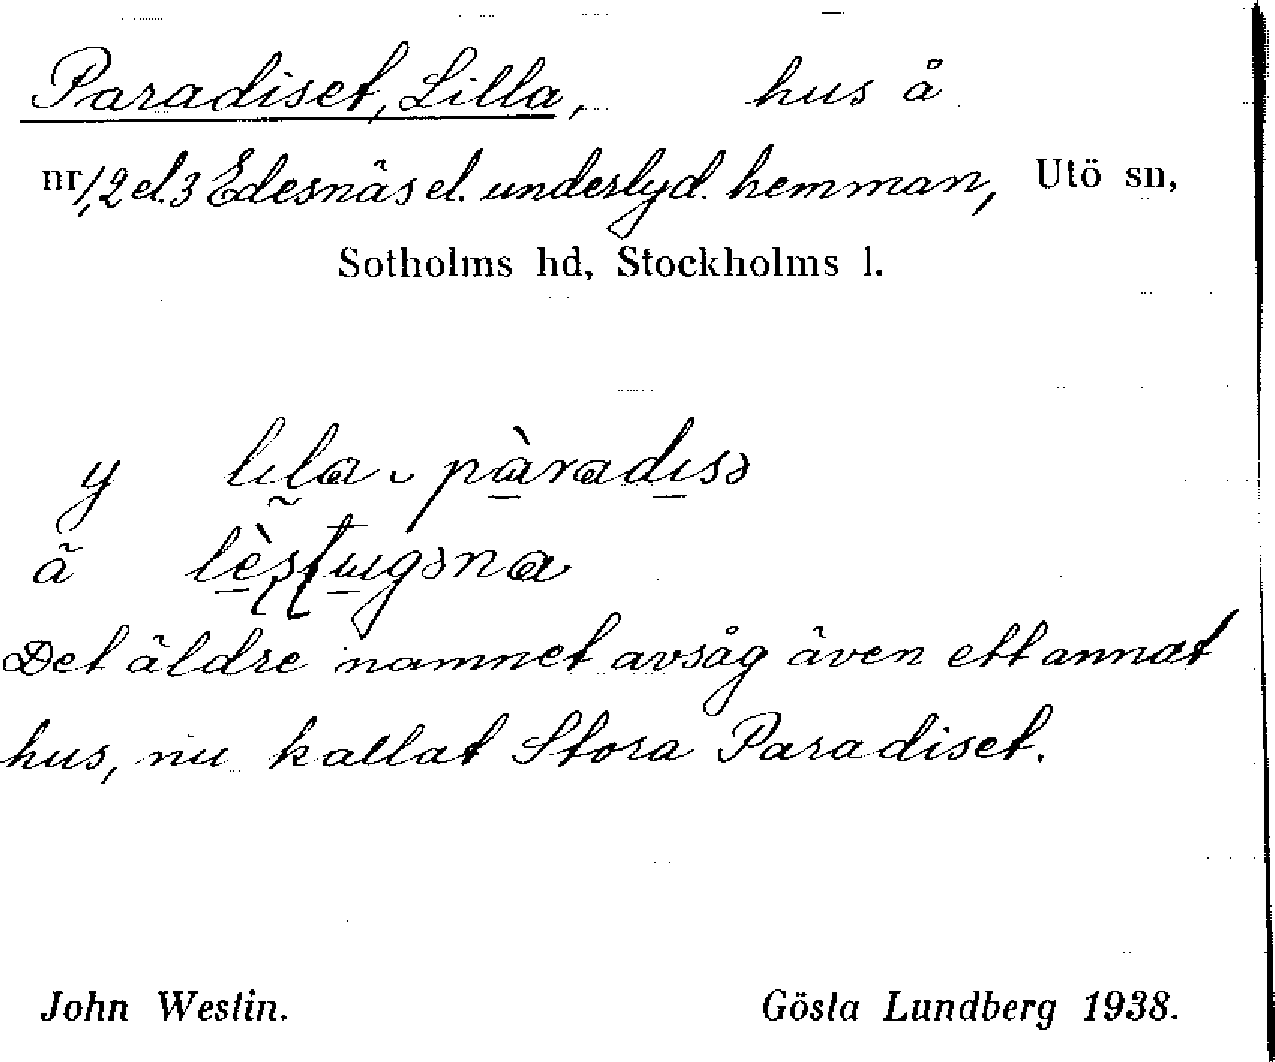 Paradiset, Lilla, hus å
nr 1, 2 el. 3 Edesnäs el. underlyd. hemman, Utö sn,
Sotholms hd, Stockholms l.
y lıla ˬ pàradısə
ä
Det äldre namnet avsåg även ett annat
hus, nu kallat Stora Paradiset.
John Westin. Gösta Lundberg 1938.